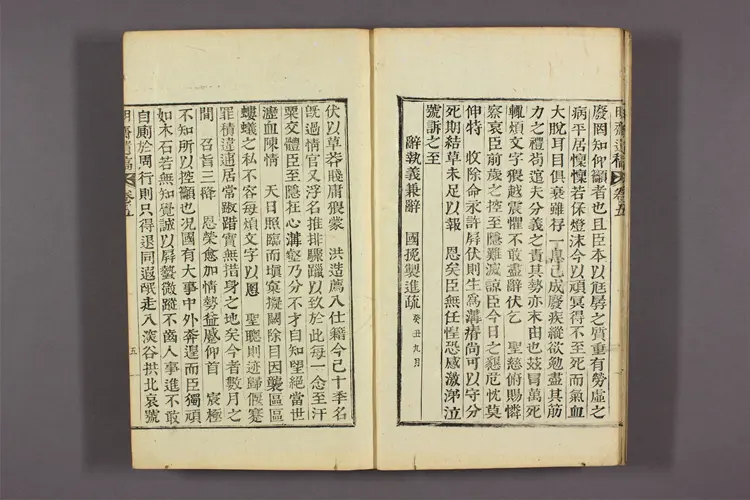 廢罔知仰籲者也且臣本以尫孱之質重有勞虛之
病平居懍懍若保燈沫今以頑冥得不至死而氣血
大脫耳目俱衰雖存一息已成廢疾縱欲勉盡其筋
力之禮苟逭夫分義之責其勢亦末由也玆冒萬死
輒煩文字猥越震懼不敢盡辭伏乞 聖慈俯賜憐
察哀臣前歲之控至隱難滅諒臣今日之懇危忱莫
伸特 收除命永許屛伏則生爲溝瘠尚可以守分
死期結草未足以報 恩矣臣無任惶恐感激涕泣
號訴之至
辭執義兼辭 國挽製進疏 癸丑九月
伏以草莽賤庸猥蒙 洪造薦入仕籍今已十年名
旣過情官又浮名推排驟躐以致於此每一念至汗
粟交體臣至隱在心溝壑乃分不才自知望絕當世
瀝血陳情 天日照臨而塡窠擬闕除目因襲區區
螻蟻之私不容每煩文字以恩 聖聰則迹歸偃蹇
罪積逋逋居常跼蹐實無措身之地矣今者數月之
間 召旨三降 恩榮愈加情勢益蹙仰首 宸極
不知所以控籲也况國有大事中外奔遑而臣獨頑
如木石若無知覺誠以屛蟄微蹤不齒人事進不敢
自廁於周行則只得退同遐氓走入溪谷拱北哀號
明齋遺稿 卷五
五